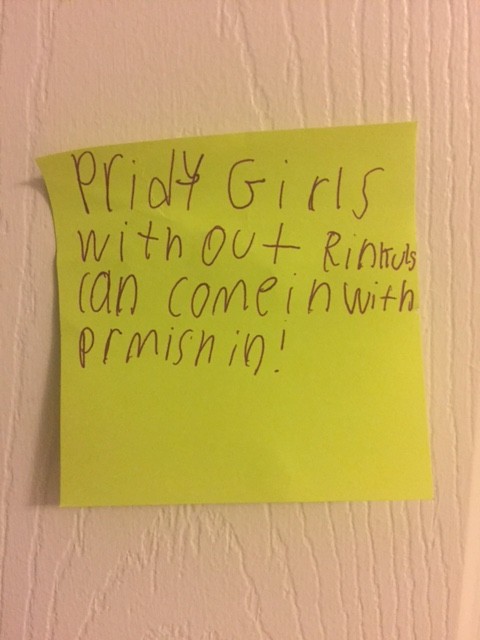 Pridy Girls
with out Rinkuls
can come in with
prmishin!